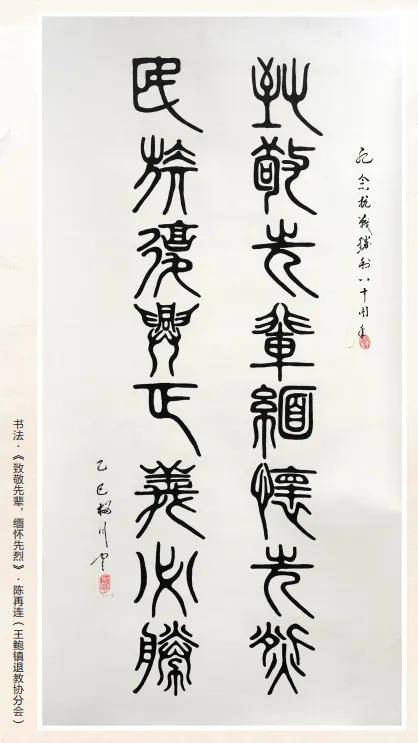 纪念抗战勝利八十周年
致敬先輩緬懷先烈
民族復興正義必勝
乙巳
书法·《致敬先辈，缅怀先烈》·陈再连（王鲍镇退教协分会）